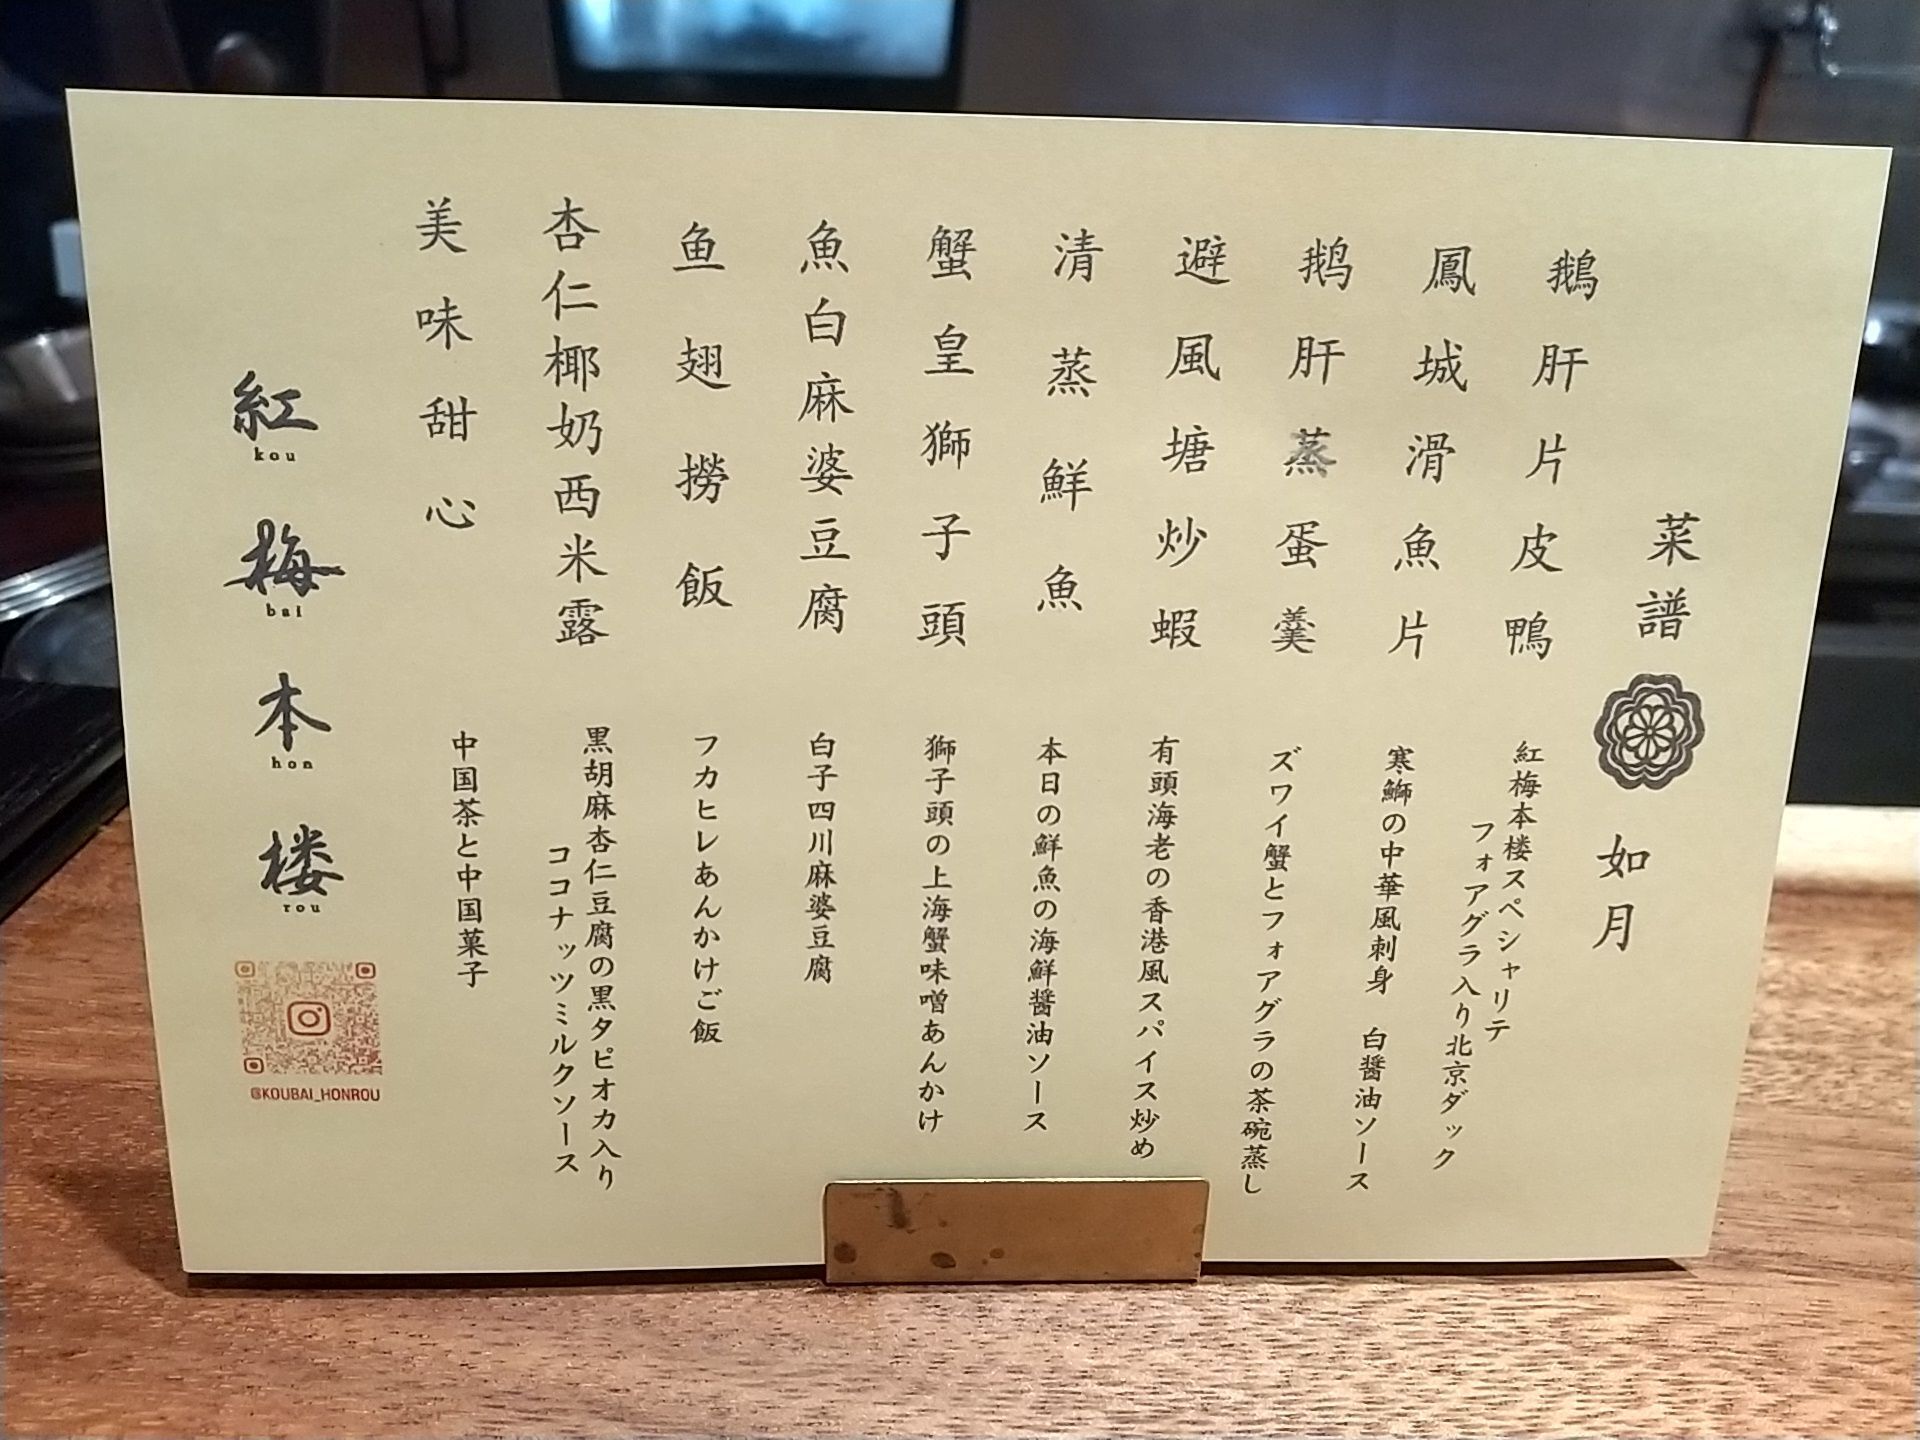 菜譜 如月
鵝肝片皮鴨
紅梅本楼スペシャリテ
フォアグラ入り北京ダック
鳳城滑魚片
寒鰤の中華風刺身 白醤油ソース
鹅肝蒸蛋羹
ズワイ蟹とフォアグラの茶碗蒸し
避風塘炒蝦
有頭海老の香港風スパイス炒め
清蒸鮮魚
本日の鮮魚の海鮮醤油ソース
蟹皇獅子頭
獅子頭の上海蟹味噌あんかけ
魚白麻婆豆腐
白子四川麻婆豆腐
鱼翅撈飯
フカヒレあんかけご飯
杏仁椰奶西米露
黒胡麻杏仁豆腐の黒タピオカ入り
ココナッツミルクソース
美味甜心
中国茶と中国菓子
紅梅本楼
kou bai hon rou
@KOUBAI_HONROU